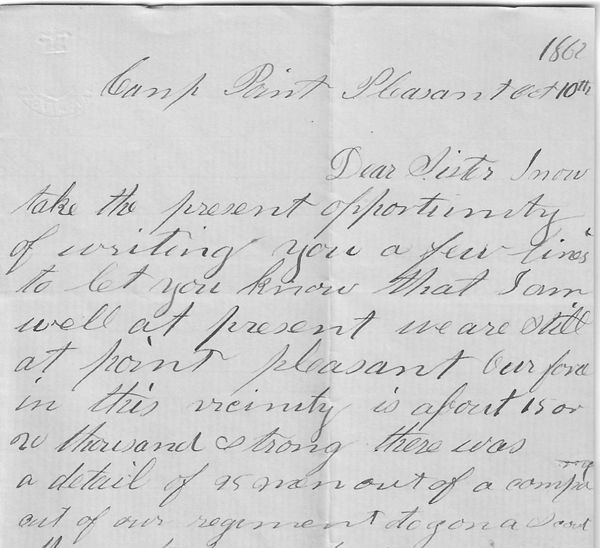 1862
Camp Point Pleasant Oct 10th
Dear Sister I now
take the present opportunity
of writing you a few lines
to let you know that I am
well at present we are still
at point pleasant Our force
in this vicinity is about 15 or
20 thousand strong there was
a detail of 25 men out of a company
out of our regiment to go on a scout